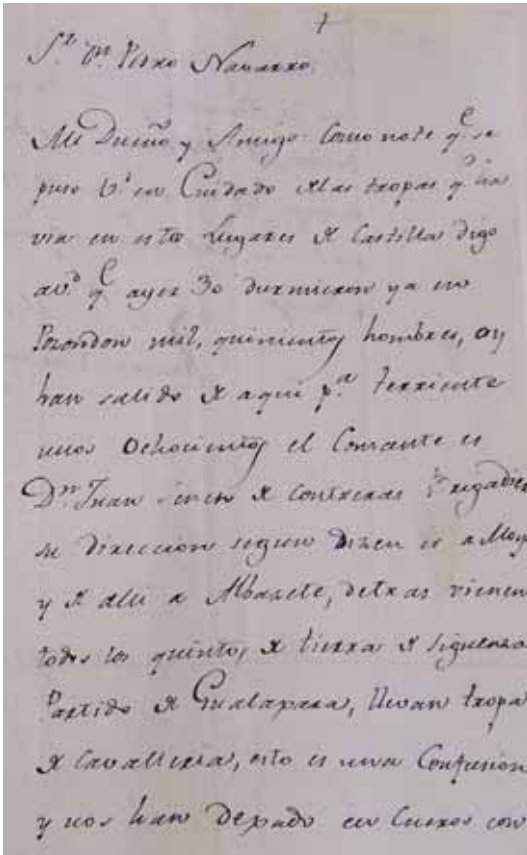 +
S.r D.n Pedro Navarro.
Mi Dueño y Amigo: Como note q.e se
puso V.d en Cuidado de las tropas q.e ha
via en estos Lugares de Castilla digo
a V.d q.e ayer 30 durmieron ya en
Pozondon mil, quinientos hombres, oy
han salido de aqui p.a terriente
unos Ochocientos el Comante es
D.n Juan de Contreras Brigadier
su direccion segun dizen es a Moy
y de alli a Albazete, detras vienen
todos los quintos de tierra de Siguenza
Partido de Gualaxara, llevan tropa
de Cavalleria, esto es una Confusion
y nos han dexado en Cueros con